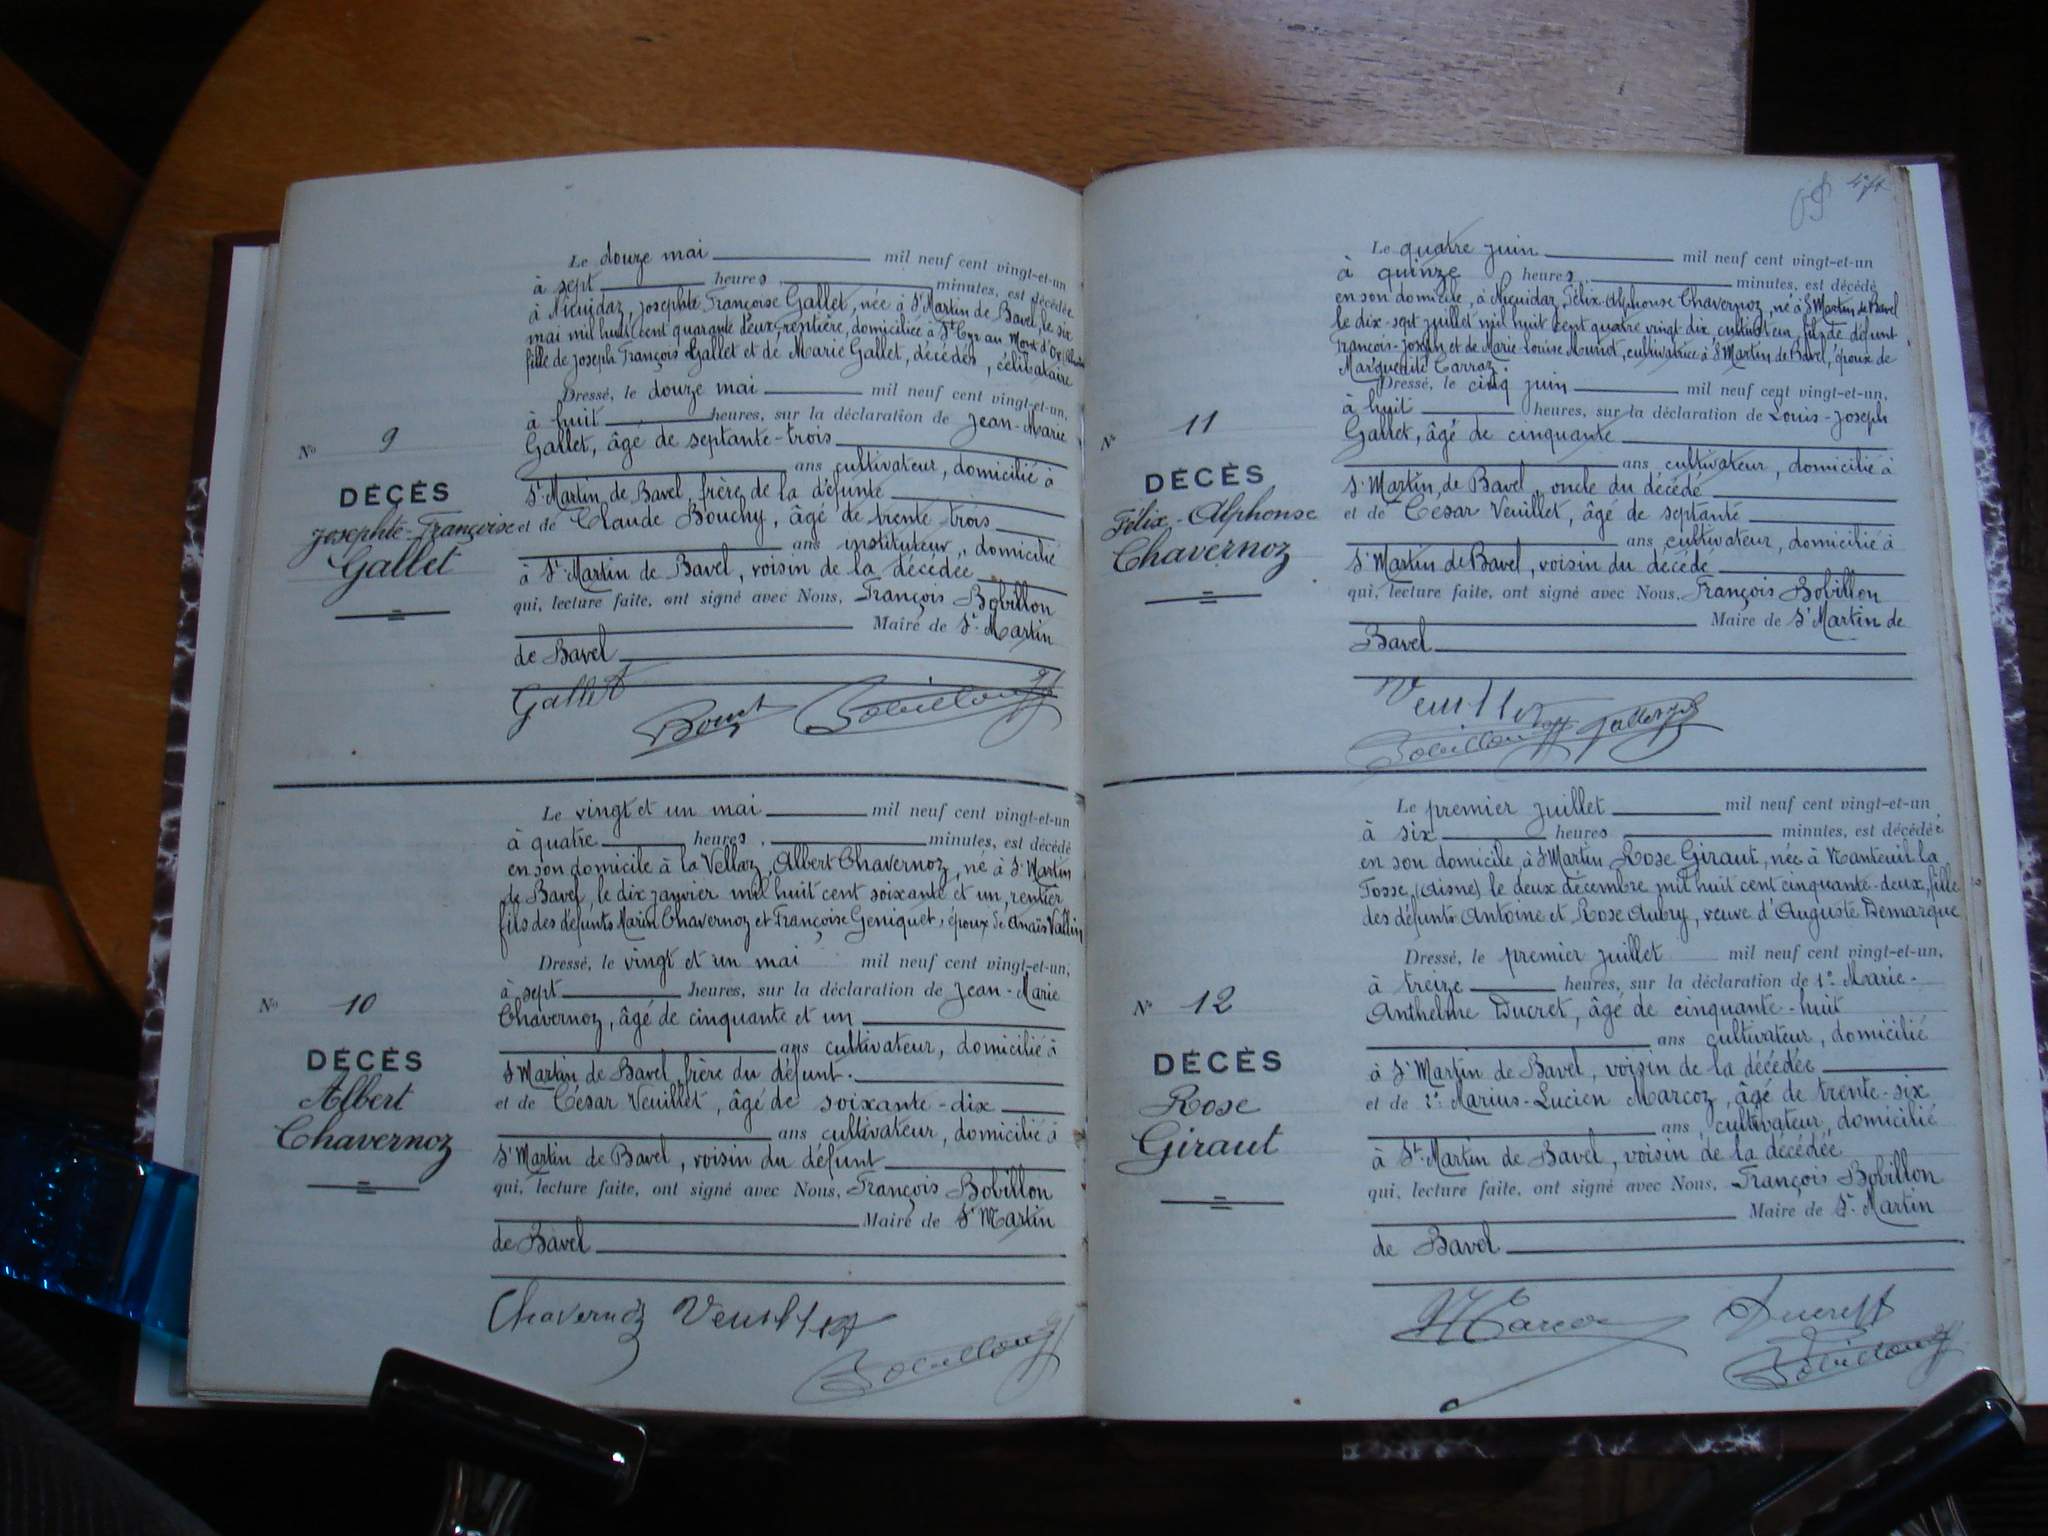 Le douze mai mil neuf cent vingt-et-un
à sept heures minutes, est décédée
à Niçuidaz, Josephte Françoise Gallet, née à St Martin de Bavel, le six
mai mil huit cent quarante deux, rentière, domiciliée à St Cyr au Mont d'Or
fille de Joseph François Gallet et de Marie Gallet, décédés, célibataire
Dressé, le douze mai mil neuf cent vingt-et-un,
à huit heures, sur la déclaration de Jean-Marie
Gallet, âgé de septante-trois
ans cultivateur, domicilié à
St Martin de Bavel, frère de la défunte
et de Claude Bouchy, âgé de trente trois
ans instituteur, domicilié
à St Martin de Bavel, voisin de la décédée
qui, lecture faite, ont signé avec Nous, François Bobillon
Maire de St Martin
de Bavel
No 9
DÉCÈS
Josephte-Françoise
Gallet
Gallet
Bobillon
Le vingt et un mai mil neuf cent vingt-et-un
à quatre heures, minutes, est décédé
en son domicile à la Vellaz, Albert Chavernoz, né à St Martin
de Bavel, le dix janvier mil huit cent soixante et un, rentier
fils des défunts Marin Chavernoz et Françoise Geniquet, époux de Anaïs Vallin
Dressé, le vingt et un mai mil neuf cent vingt-et-un,
à sept heures, sur la déclaration de Jean-Marie
Chavernoz, âgé de cinquante et un
ans cultivateur, domicilié à
St Martin de Bavel, frère du défunt.
et de César Veuillet, âgé de soixante-dix
ans cultivateur, domicilié à
St Martin de Bavel, voisin du défunt
qui, lecture faite, ont signé avec Nous, François Bobillon
Maire de St Martin
de Bavel
No 10
DÉCÈS
Albert
Chavernoz
Chavernoz Veuillet
Bobillon
Le quatre juin mil neuf cent vingt-et-un
à quinze heures, minutes, est décédé
en son domicile, à Niçuidaz, Félix-Alphonse Chavernoz, né à St Martin de Bavel
le dix-sept juillet mil huit cent quatre vingt dix, cultivateur, fils de défunt
François-Joseph et de Marie-Louise Muriot, cultivatrice à St Martin de Bavel, époux de
Marguerite Carraz.
Dressé, le cinq juin mil neuf cent vingt-et-un,
à huit heures, sur la déclaration de Louis-Joseph
Gallet, âgé de cinquante
ans cultivateur, domicilié à
St Martin, de Bavel, oncle du décédé
et de César Veuillet, âgé de septante
ans cultivateur, domicilié à
St Martin de Bavel, voisin du décédé
qui, lecture faite, ont signé avec Nous, François Bobillon
Maire de St Martin de
Bavel
No 11
DÉCÈS
Félix-Alphonse
Chavernoz
Veuillet
Bobillon Gallet
Le premier juillet mil neuf cent vingt-et-un
à six heures minutes, est décédée
en son domicile, à St Martin, Rose Giraut, née à Nanteuil la
Fosse, (Aisne) le deux décembre mil huit cent cinquante-deux, fille
des défunts Antoine et Rose Aubry, veuve d'Auguste Demarque
Dressé, le premier juillet mil neuf cent vingt-et-un,
à treize heures, sur la déclaration de 1° Marie-
Anthelme Ducret, âgé de cinquante-huit
ans cultivateur, domicilié
à St Martin de Bavel, voisin de la décédée
et de 2° Marius-Lucien Marcoz, âgé de trente-six
ans, cultivateur, domicilié
à St. Martin de Bavel, voisin de la décédée
qui, lecture faite, ont signé avec Nous, François Bobillon
Maire de St. Martin
de Bavel
No 12
DÉCÈS
Rose
Giraut
Marcoz Ducret
Bobillon